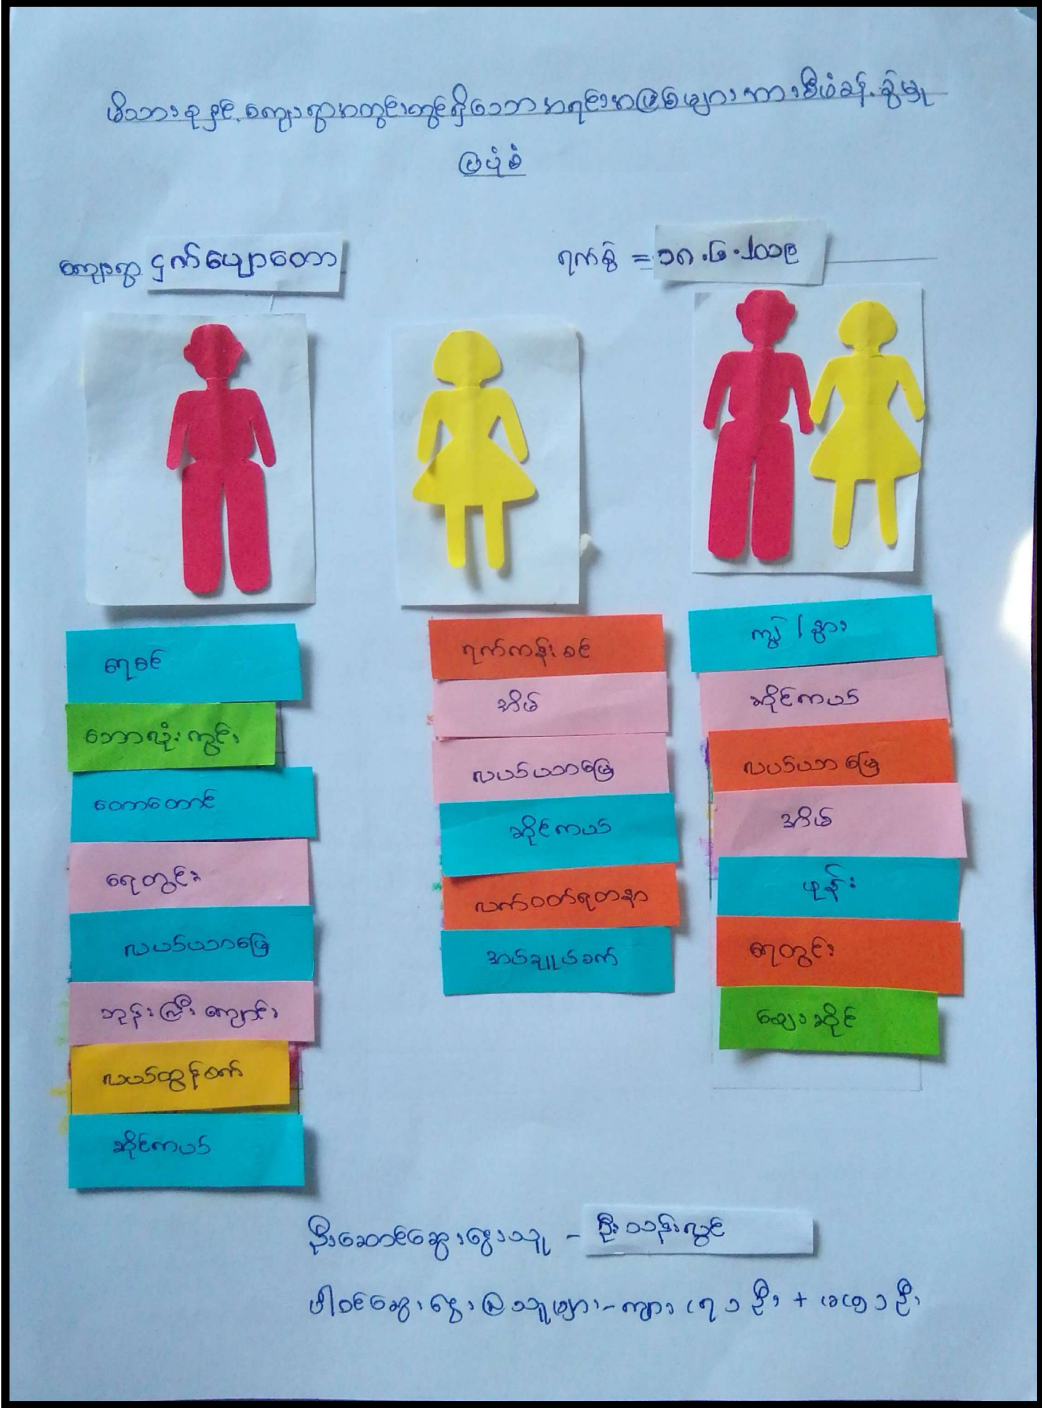 မိသားစုနှင့် ကျေးရွာအတွင်းတွင်ရှိသော အရင်းအမြစ်များအားစီမံခန့်ခွဲမှု
ပြပုံစံ
ကျေးရွာ ငှက်ပျောတော
ရက်စွဲ = ၁၈.၆.၂၀၁၉
ရေစင်
ဘောလုံးကွင်း
တောတောင်
ရေတွင်း
လယ်ယာမြေ
ဘုန်းကြီးကျောင်း
လယ်ထွန်စက်
ဆိုင်ကယ်
ရက်ကန်းစင်
အိမ်
လယ်ယာမြေ
ဆိုင်ကယ်
လက်ဝတ်ရတနာ
အပ်ချုပ်စက်
ကျွဲ/နွား
ဆိုင်ကယ်
လယ်ယာမြေ
အိမ်
ဖုန်း
ရေတွင်း
ဈေးဆိုင်
ဦးဆောင်ဆွေးနွေးသူ - ဦးသန်းလွင်
ပါဝင်ဆွေးနွေးကြသူများ - ကျား ဦး + ဦး